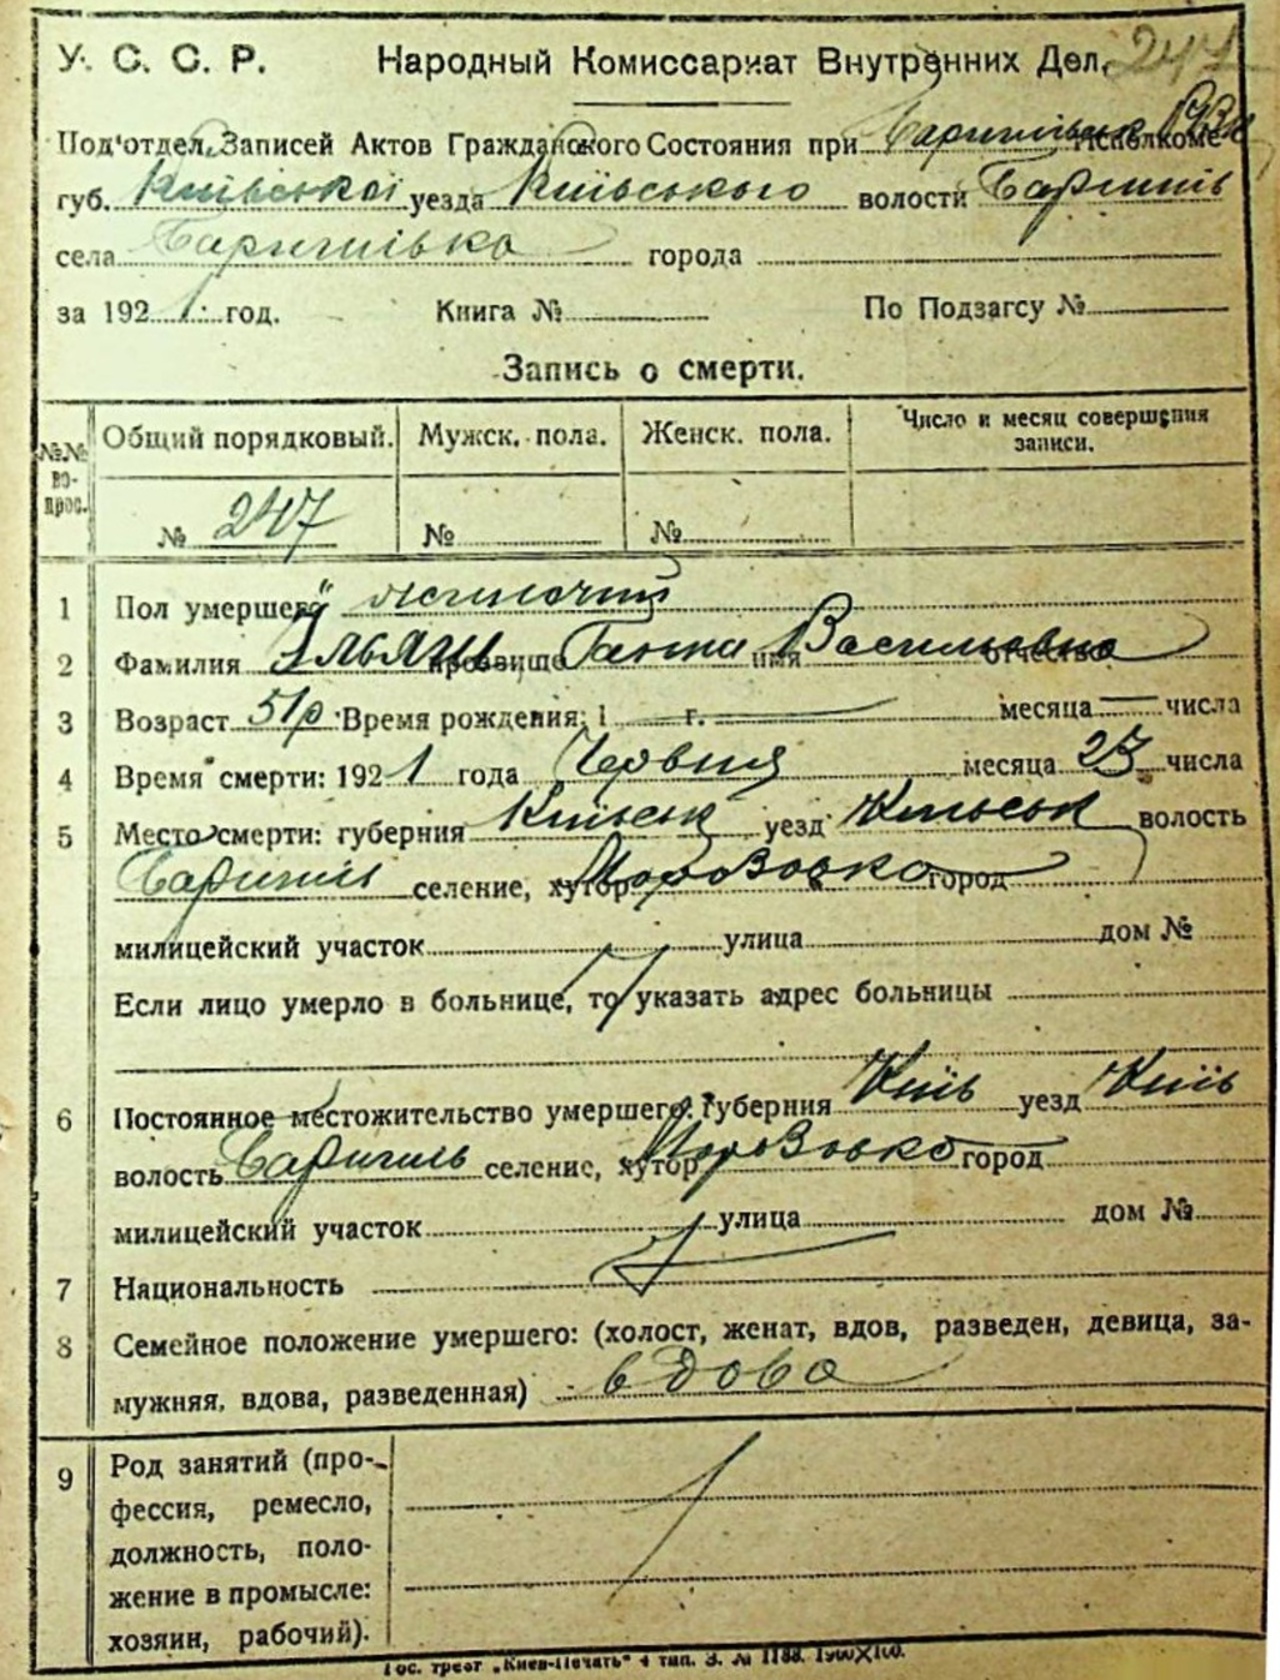 У. С. С. Р. Народный Комиссариат Внутренних Дел. 247
Под'отдел Записей Актов Гражданского Состояния при Исполкоме
губ. Київської уезда Київського волости Баришпіль
села Баришівка города
за 1921 год. Книга № По Подзагсу №
Запись о смерти.
№№ вопрос. Общий порядковый. Мужск. пола. Женск. пола. Число и месяц совершения записи.
№ 247 № №
1 Пол умершего жиночий
2 Фамилия прозвище Ганна имя Васильовна отчество
3 Возраст 51 р Время рождения: 1 г. — месяца — числа
4 Время смерти: 1921 года Червня месяца 23 числа
5 Место смерти: губерния Київськ уезд Київськ волость
селение, хутор город
милицейский участок улица дом №
Если лицо умерло в больнице, то указать адрес больницы
6 Постоянное местожительство умершего: губерния Київ уезд Київ
волость селение, хутор город
милицейский участок улица дом №
7 Национальность
8 Семейное положение умершего: (холост, женат, вдов, разведен, девица, за-
мужняя, вдова, разведенная) вдова
9 Род занятий (про-
фессия, ремесло,
должность, поло-
жение в промысле:
хозяин, рабочий).
Гос. трест „Киев-Печать" 4 тип. З. № 1188. 1900Х100.